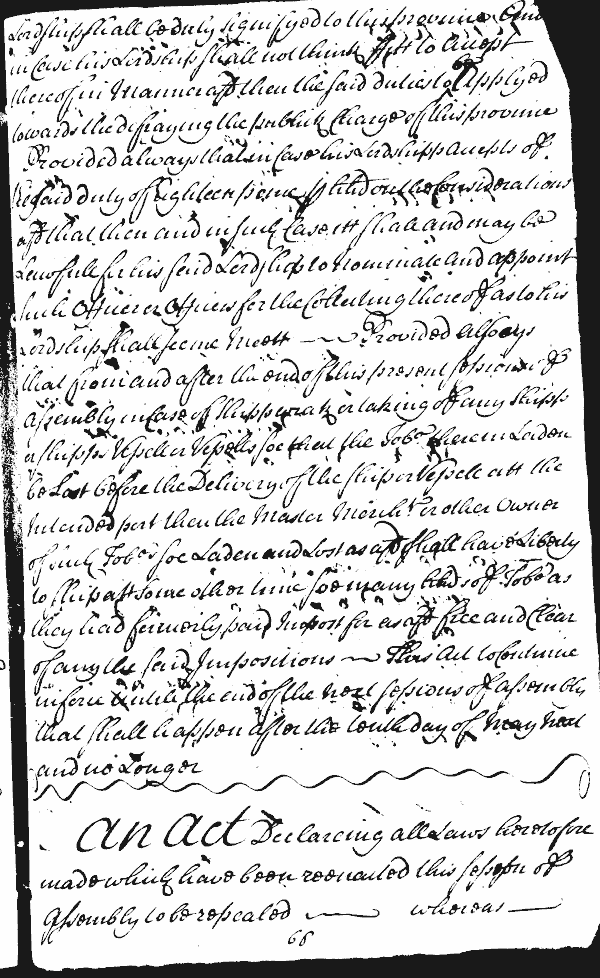 Lordshipp shall be duly signifyed to this province And
in Case his Lordship shall not think fitt to Accept
thereof in Manner afd then the said duties to be Applyed
towards the defraying the publick Charge of this province
Provided always that in Case his Lordshipp Accepts of
the said duty of Eighteen pence p hhd on the Considerations
afd that then and in such Case itt shall and may be
Lawfull for his said Lordship to nominate and appoint
such Officer or Officers for the Collecting thereof as to his
Lordship shall seeme Meett Provided Always
that from and after the end of this present session of
Assembly in Case of Shippwrack or taking of any Shipp
or shipps Vessell or Vessells soe that the Tobo therein Laden
be Lost before the Delivery of the ship or Vessell att the
Intended port then the Master Merchts or other Owner
of such Tobo soe Laden and Lost as afd shall have Liberty
to ship att some other time soe many hhds of Tobo as
they had formerly paid Impost for as afd free and Clear
of any the said Impositions This Act to Continue
in force untill the end of the next sessions of Assembly
that shall happen after the tenth day of May Next
and no Longer
An Act Declareing all Laws heretofore
made which have been reenacted this session of
Assembly to be repealed whereas
66